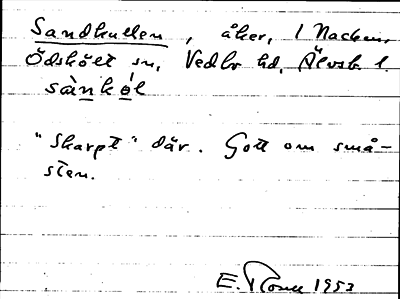 Sandkullen, åker, 1 Nacken,
Ödskölt sn, Vedbo hd, Älvsb. l.
sànkó̤l
"Skarpt" där. Gott om små-
sten.
E. 1953